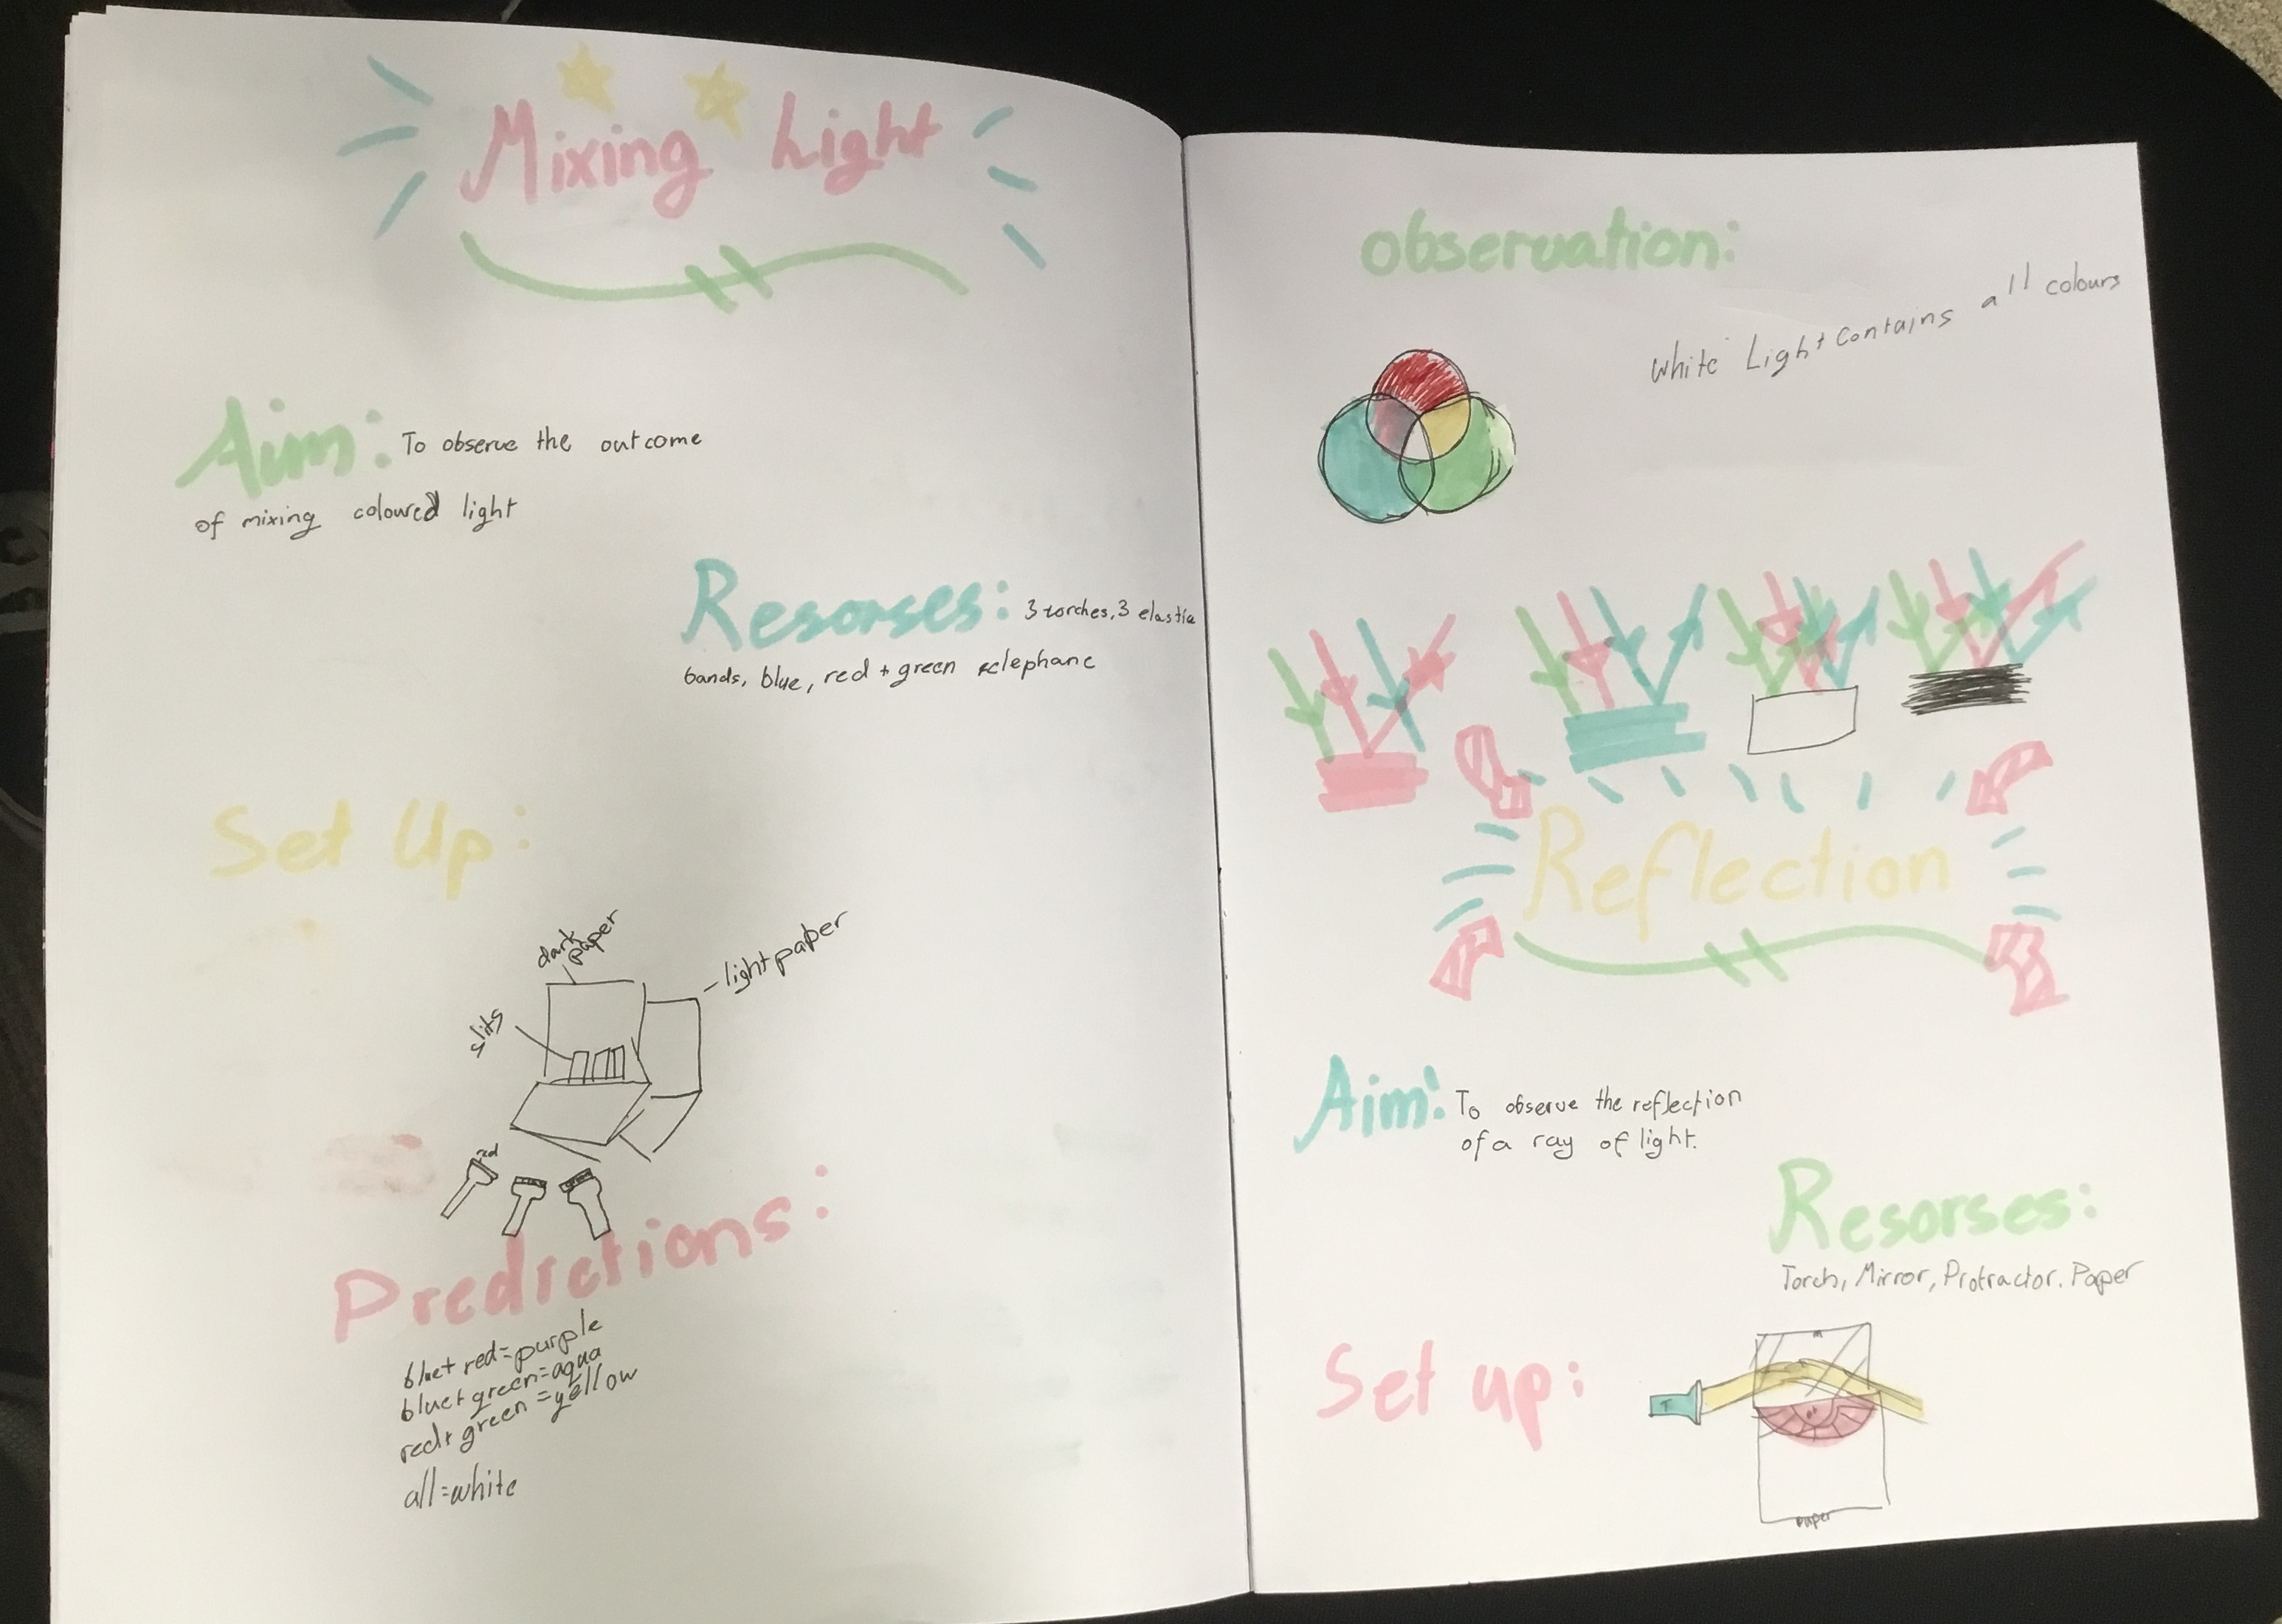 Mixing Light
Aim: To observe the outcome
of mixing coloured light
Resorses: 3 torches, 3 elastic
bands, blue, red + green selephane
Set Up:
dark
paper
light paper
slits
red
Predictions:
blue+ red=purple
blue+ green=aqua
red+ green=yellow
all=white
observation:
White Light contains all colours
Reflection
Aim: To observe the reflection
of a ray of light.
Resorses:
Torch, Mirror, Protractor. Paper
Set up:
M
T
Paper